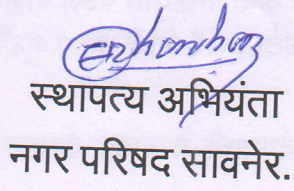 स्थापत्य अभियंता
नगर परिषद सावनेर.